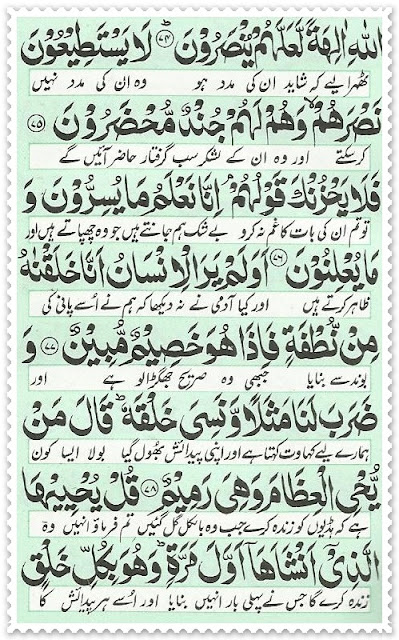 اللّٰهِ اٰلِهَةً لَّعَلَّهُمْ يُنْصَرُوْنَ ؕ‏ ﴿۷۴﴾ لَا يَسْتَطِيْعُوْنَ
ٹھہرالیے کہ شاید ان کی مدد ہو وہ ان کی مدد نہیں
نَصْرَهُمْ ۙ وَهُمْ لَهُمْ جُنْدٌ مُّحْضَرُوْنَ ﴿۷۵﴾
کرسکتے اور وہ ان کے لشکر سب گرفتار حاضر آئیں گے
فَلَا يَحْزُنْكَ قَوْلُهُمْ ۘ اِنَّا نَعْلَمُ مَا يُسِرُّوْنَ وَ
تو تم ان کی بات کا غم نہ کرو بے شک ہم جانتے ہیں جو وہ چھپاتے ہیں اور
مَا يُعْلِنُوْنَ ﴿۷۶﴾ اَوَلَمْ يَرَ الْاِنْسَانُ اَنَّا خَلَقْنٰهُ
ظاہر کرتے ہیں اور کیا آدمی نے نہ دیکھا کہ ہم نے اسے پانی کی
مِنْ نُّطْفَةٍ فَاِذَا هُوَ خَصِيْمٌ مُّبِيْنٌ ﴿۷۷﴾ وَ
بوند سے بنایا جبھی وہ صریح جھگڑالو ہے اور
ضَرَبَ لَنَا مَثَلًا وَّنَسِىَ خَلْقَهٗ ؕ قَالَ مَنْ
ہمارے لیے کہاوت کہتا ہے اور اپنی پیدائش بھول گیا بولا ایسا کون
يُّحْىِ الْعِظَامَ وَهِىَ رَمِيْمٌ ﴿۷۸﴾ قُلْ يُحْيِيْهَا
ہے کہ ہڈیوں کو زندہ کرے جب وہ بالکل گل گئیں تم فرماؤ انہیں وہ
الَّذِىْۤ اَنْشَاَهَاۤ اَوَّلَ مَرَّةٍ ؕ وَهُوَ بِكُلِّ خَلْقٍ
زندہ کرے گا جس نے پہلی بار انہیں بنایا اور اسے ہر پیدائش کا